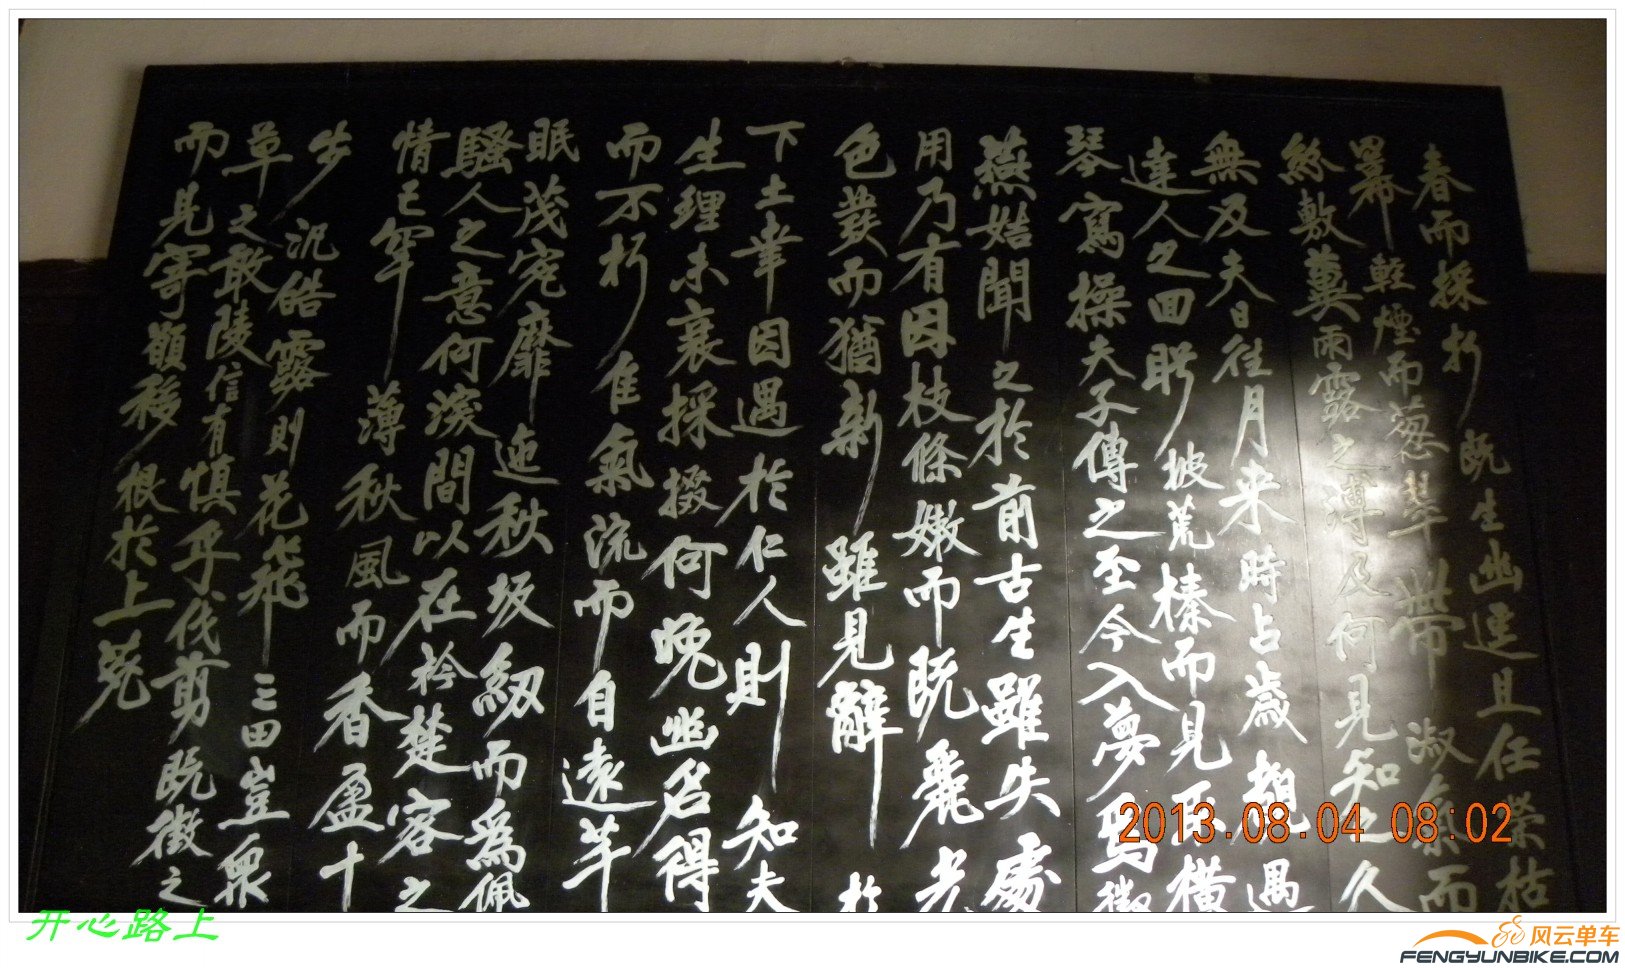 既生幽逕且任榮枯
春而採折
淑氣而
冪輕煙而蔥翠帶
雨露之溥及何見知之久
紛敷蕙
無及夫日往月来時占歲
相見遇
達人之回眄披荒榛而見
橫
琴寫操夫子傳之至今入夢為徵
燕姞聞之於前古生雖失處
用乃有因枝條嫩而既麗光
色發而猶新雖見辭於
下土幸因遇於仁人則知夫
生理未衰採掇何晚幽名得
而不朽佳氣流而自遠羊
眠茂宛靡迎秋坂紉而為佩
騷人之意何深間以在衿楚客之
情已罕薄秋風而香盈十
步汎皓露則花飛三田豈眾
草之敢陵信有慎乎伐剪既徵之
而見寄願移根於上苑
2013.08.04 08:02
开心路上
风云单车
FENGYUNBIKE.COM